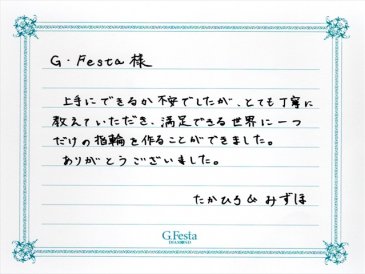 G・Festa 様
上手にできるか不安でしたが、とても丁寧に
教えていただき、満足できる世界に一つ
だけの指輪を作ることができました。
ありがとうございました。
たかひろ & みずほ
G.Festa
DIAMOND